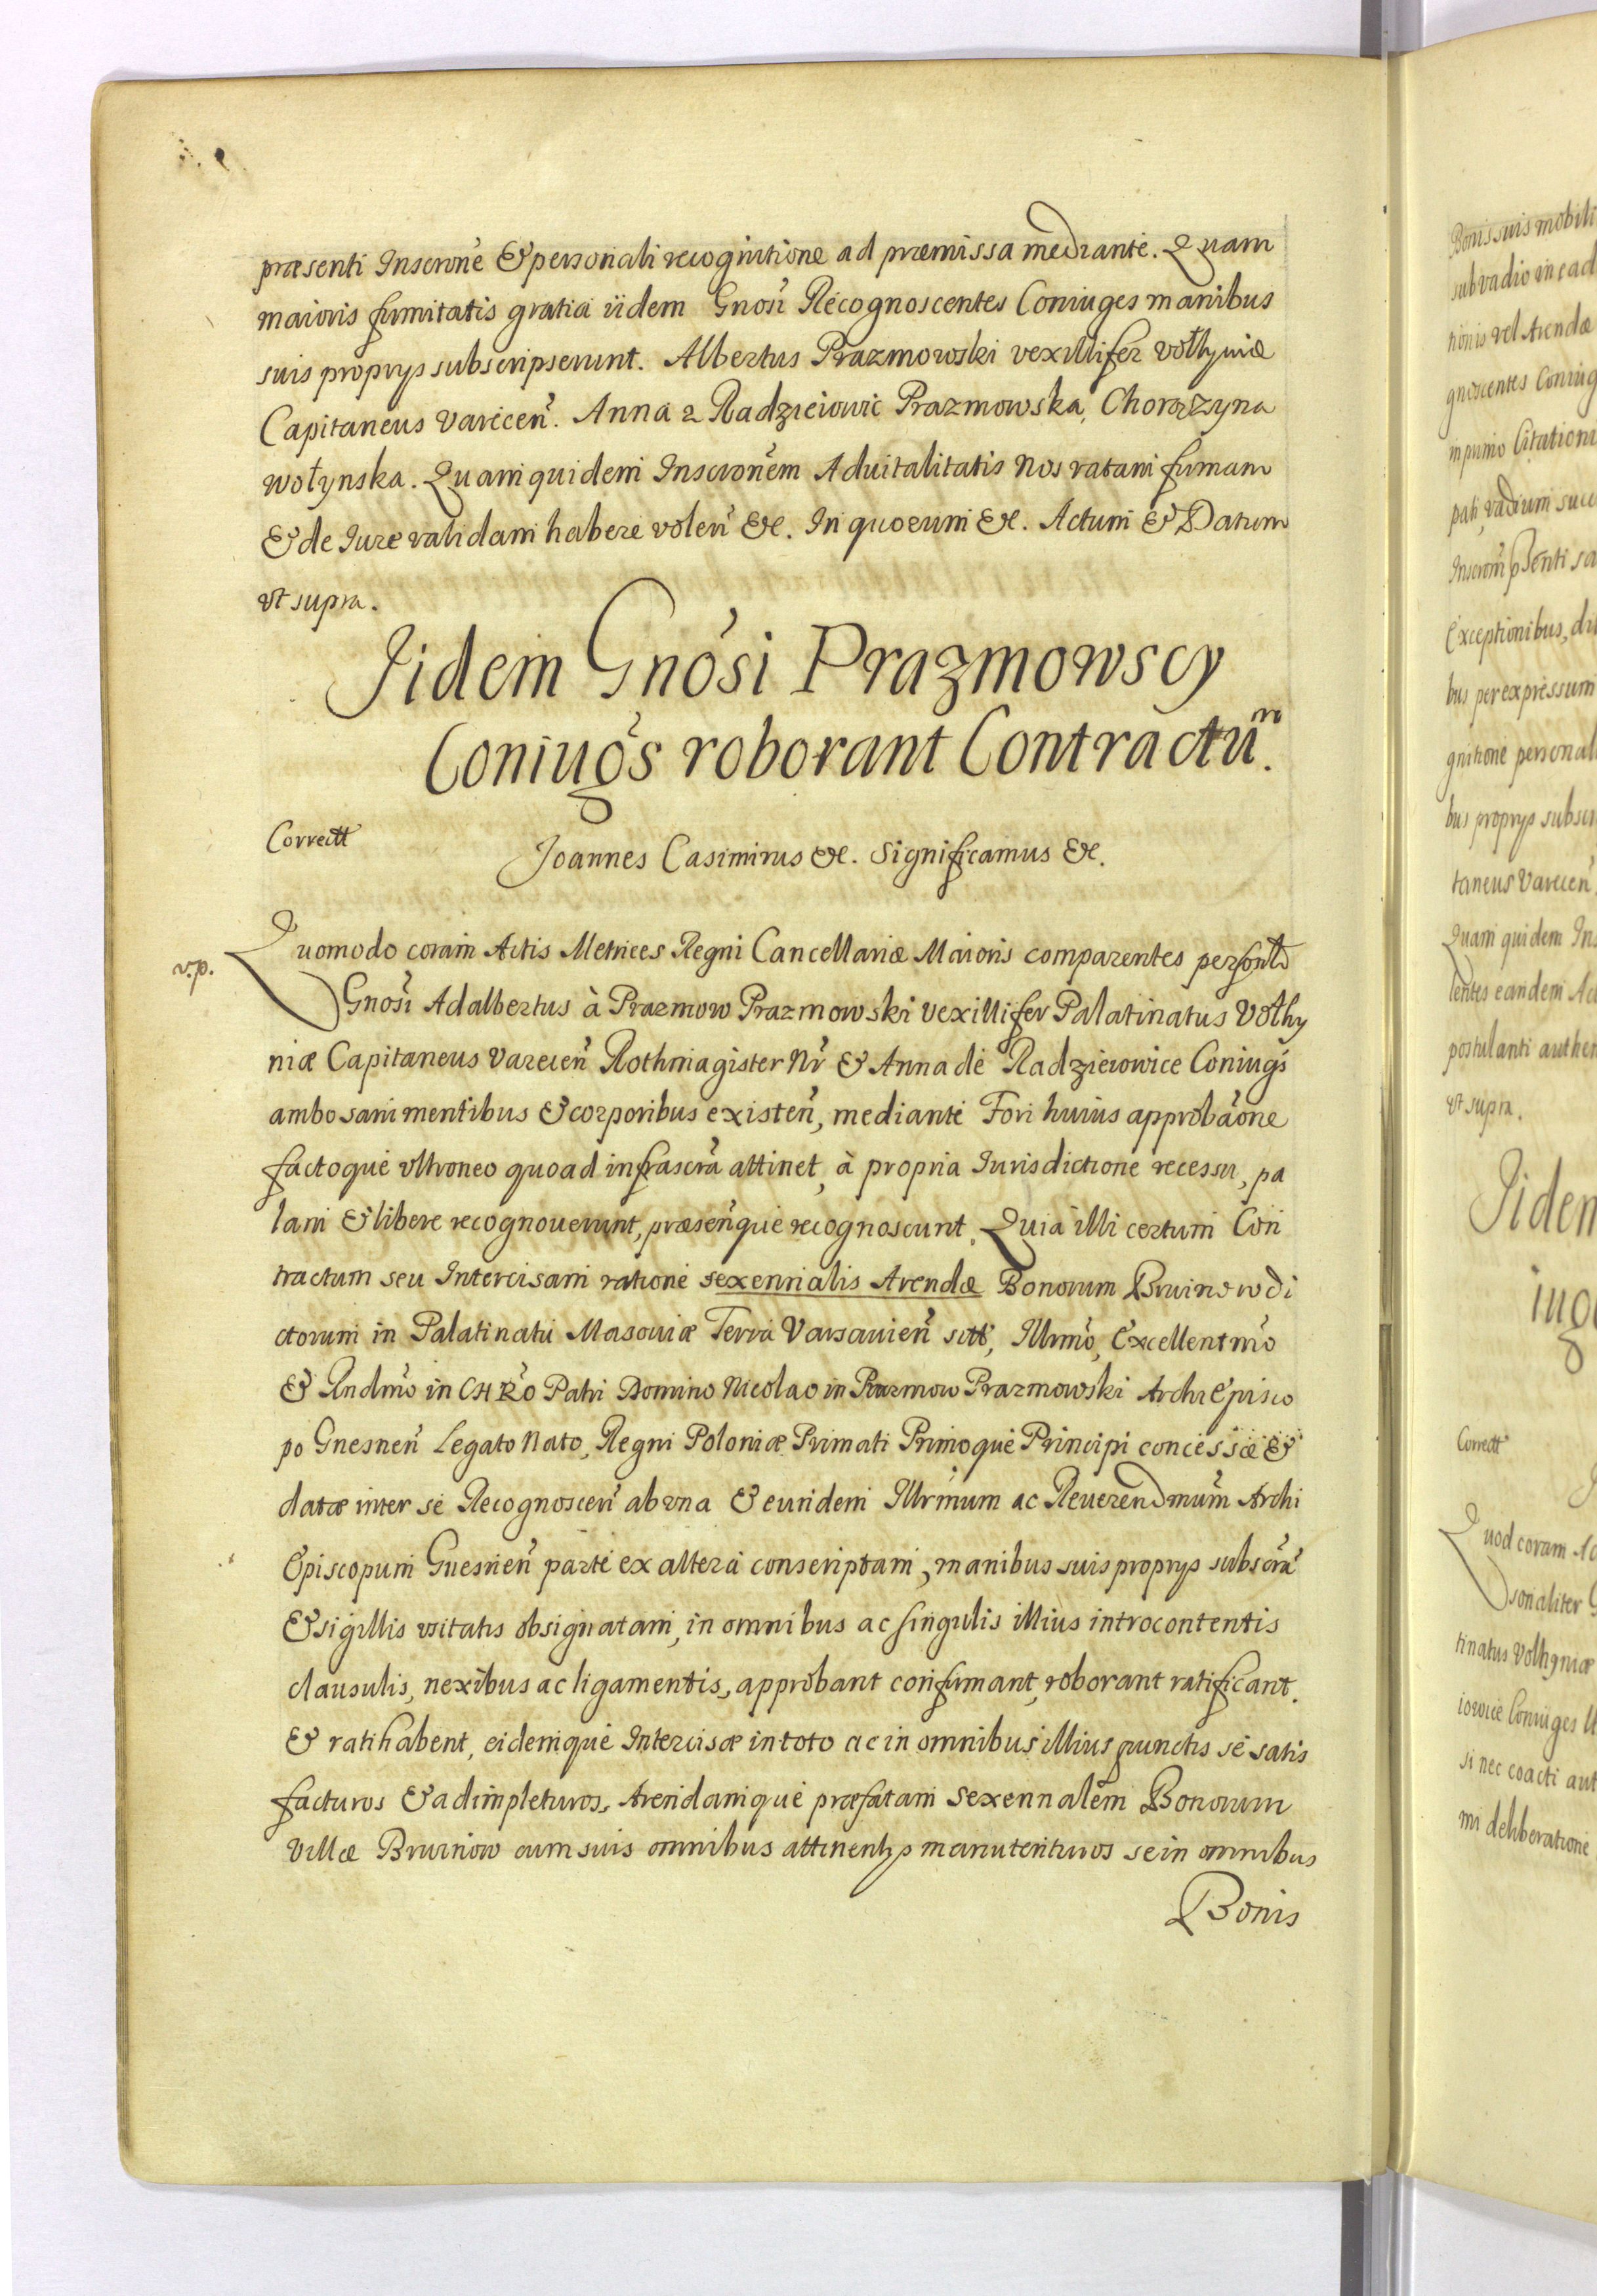 præsenti Inscrone & personali recognitione ad præmissa mediante. Quam
maioris firmitatis gratia iidem Gnosi Recognoscentes Coniuges manibus
suis proprys subscripserunt. Albertus Prazmowski vexillifer Volhyniæ
Capitaneus Varecen. Anna z Radzieiowic Prazmowska, Chorązyna
wołynska. Quam quidem Inscronem Aduitalitatis Nos ratam firmam
& de Iure validam habere volen &c. In quorum &c. Actum & Datum
vt supra.
Iidem Gnosi Prazmowscy
Coniugs roborant Contractũm.
Correctt
Joannes Casimirus &c. Significamus &c.
v.p.
Quomodo coram Actis Metrices Regni Cancellariæ Maioris comparentes personlr
Gnosi Adalbertus à Prazmow Prazmowski Vexillifer Palatinatus Volhy
niæ Capitaneus Varecen Rothmagister Nr & Anna de Radzieiowice Coniugs
ambo sani mentibus & corporibus existen, mediante Fori huius approbaone
factoque vltroneo quoad infrascra attinet, à propria Iurisdictione recessu, pa
lam & libere recognouerunt, præsenque recognoscunt. Quia illi certum Con
tractum seu Intercisam ratione sexennialis Arendæ Bonorum Brwinow di
ctorum in Palatinatu Masouiæ Terra Varsauien sitt, Illrmo, Excellentmo
& Rndmo in CHRO Patri Domino Nicolao in Prazmow Prazmowski ArchiEpisco
po Gnesnen Legato Nato, Regni Poloniæ Primati Primoque Principi concessæ &
datæ inter se Recognoscen ab vna & eundem Illrmum ac Reuerendmum Archi
Episcopum Gnesnen parte ex altera conscriptam, manibus suis proprys subscra
& sigillis vsitatis obsignatam, in omnibus ac singulis illius introcontentis
clausulis, nexibus ac ligamentis, approbant confirmant, roborant ratificant.
& ratihabent, eidemque Intercisæ in toto ac in omnibus illius punctis se satis
facturos & adimpleturos, Arendamque præfatam Sexennalem Bonorum
Villæ Brwinow cum suis omnibus attinentys manutenturos se in omnibus
Bonis
Bonis suis mobili
sub vadio in ead
tionis vel Arendæ
gnoscentes Coniug
in primo Citationi
pati, vadium succ
Inscrom pñti sa
Exceptionibus, di
bus per expressum
gnitione personal
bus proprys subscr
taneus Varecen.
Quam quidem Ins
lentes eandem Ac
postulanti authen
vt supra.
Iidem
iug
Correctt
J
Quod coram Ac
sonaliter G
tinatus Volhyniæ
iowice Coniuges U
si nec coacti aut
mi deliberatione